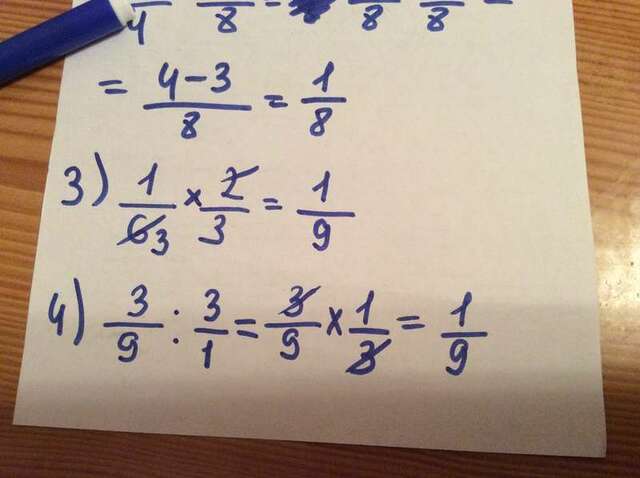 4 8 = 8 8 =
= 4-3/8 = 1/8
3) 1/6 3 × 2/3 = 1/9
4) 3/9 : 3/1 = 3/9 × 1/3 = 1/9